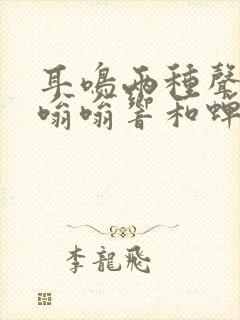 耳鳴兩種聲
嗡嗡響和蟬
李龍飛